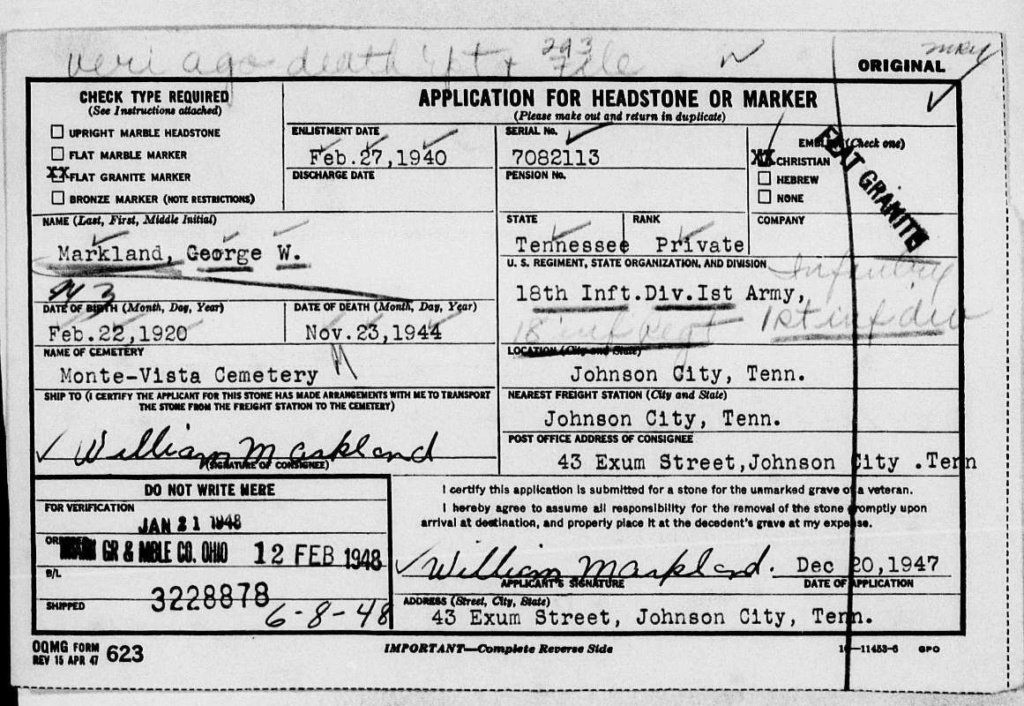 veri ago death rpt & File
293
ORIGINAL
CHECK TYPE REQUIRED
(See Instructions attached)
☐ UPRIGHT MARBLE HEADSTONE
☐ FLAT MARBLE MARKER
XX FLAT GRANITE MARKER
☐ BRONZE MARKER (NOTE RESTRICTIONS)
APPLICATION FOR HEADSTONE OR MARKER
(Please make out and return in duplicate)
ENLISTMENT DATE
Feb.27,1940
DISCHARGE DATE
SERIAL No.
7082113
PENSION No.
(Check one)
XX CHRISTIAN
☐ HEBREW
☐ NONE
FLAT GRANITE
NAME (Last, First, Middle Initial)
Markland, George W.
STATE
Tennessee
RANK
Private
COMPANY
U. S. REGIMENT, STATE ORGANIZATION, AND DIVISION
Infantry
18th Inft.Div.Ist Army,
18 inf regt 1st inf div
DATE OF BIRTH (Month, Day, Year)
Feb.22,1920
DATE OF DEATH (Month, Day, Year)
Nov.23,1944
NAME OF CEMETERY
Monte-Vista Cemetery
LOCATION (City and State)
Johnson City, Tenn.
SHIP TO (I CERTIFY THE APPLICANT FOR THIS STONE HAS MADE ARRANGEMENTS WITH ME TO TRANSPORT
THE STONE FROM THE FREIGHT STATION TO THE CEMETERY)
William Markland
(SIGNATURE OF CONSIGNEE)
NEAREST FREIGHT STATION (City and State)
Johnson City, Tenn.
POST OFFICE ADDRESS OF CONSIGNEE
43 Exum Street,Johnson City .Tenn
DO NOT WRITE HERE
FOR VERIFICATION
JAN 21 1948
GR & MBLE CO. OHIO 12 FEB 1948
B/L
3228878
SHIPPED
6-8-48
I certify this application is submitted for a stone for the unmarked grave of a veteran.
I hereby agree to assume all responsibility for the removal of the stone promptly upon
arrival at destination, and properly place it at the decedent's grave at my expense.
William Markland. Dec 20,1947
APPLICANT'S SIGNATURE DATE OF APPLICATION
ADDRESS (Street, City, State)
43 Exum Street, Johnson City, Tenn.
OQMG FORM
REV 15 APR 47 623
IMPORTANT—Complete Reverse Side
16—11453-6 GPO